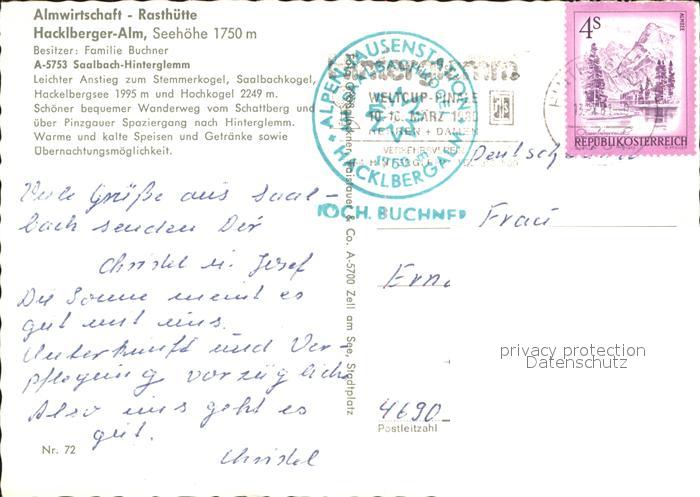 Almwirtschaft - Rasthütte
Hacklberger-Alm, Seehöhe 1750 m
Besitzer: Familie Buchner
A-5753 Saalbach-Hinterglemm
Leichter Anstieg zum Stemmerkogel, Saalbachkogel,
Hackelbergsee 1995 m und Hochkogel 2249 m.
Schöner bequemer Wanderweg vom Schattberg und
über Pinzgauer Spaziergang nach Hinterglemm.
Warme und kalte Speisen und Getränke sowie
Übernachtungsmöglichkeit.
Viele Grüße aus Saal-
bach senden Dir
Christel u. Josef
Die Sonne meint es
gut mit uns.
Unterkunft und Ver-
pflegung vorzüglich
Also uns geht es
gut.
Christel
Nr. 72
& Co. A-5700 Zell am See, Stadtplatz
ALPEN JAUSENSTATION
HACKLBERGALM
1750 m
OCH. BUCHNER
WELTCUP-FINALE
10-16. MÄRZ 1980
HERREN + DAMEN
4S
ALMSEE
REPUBLIK ÖSTERREICH
Deutschland
Frau
Erna
4690
Postleitzahl
privacy protection
Datenschutz